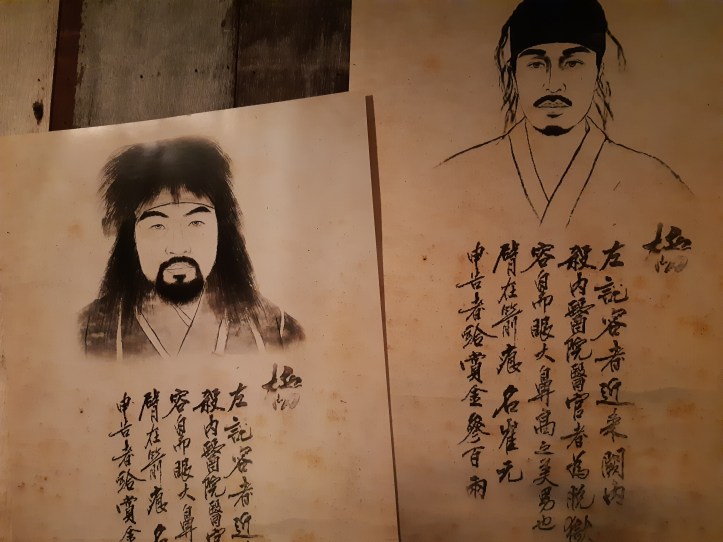 極
左記容者近来闕内
殺内醫院醫官者為脱獄
容皃眼大鼻高之美男也
臂在箭痕 名崔元
申告者給賞金參百兩
極
左記容者近
殺内醫院醫官
容皃眼大鼻
臂在箭痕 名
申告者給賞金